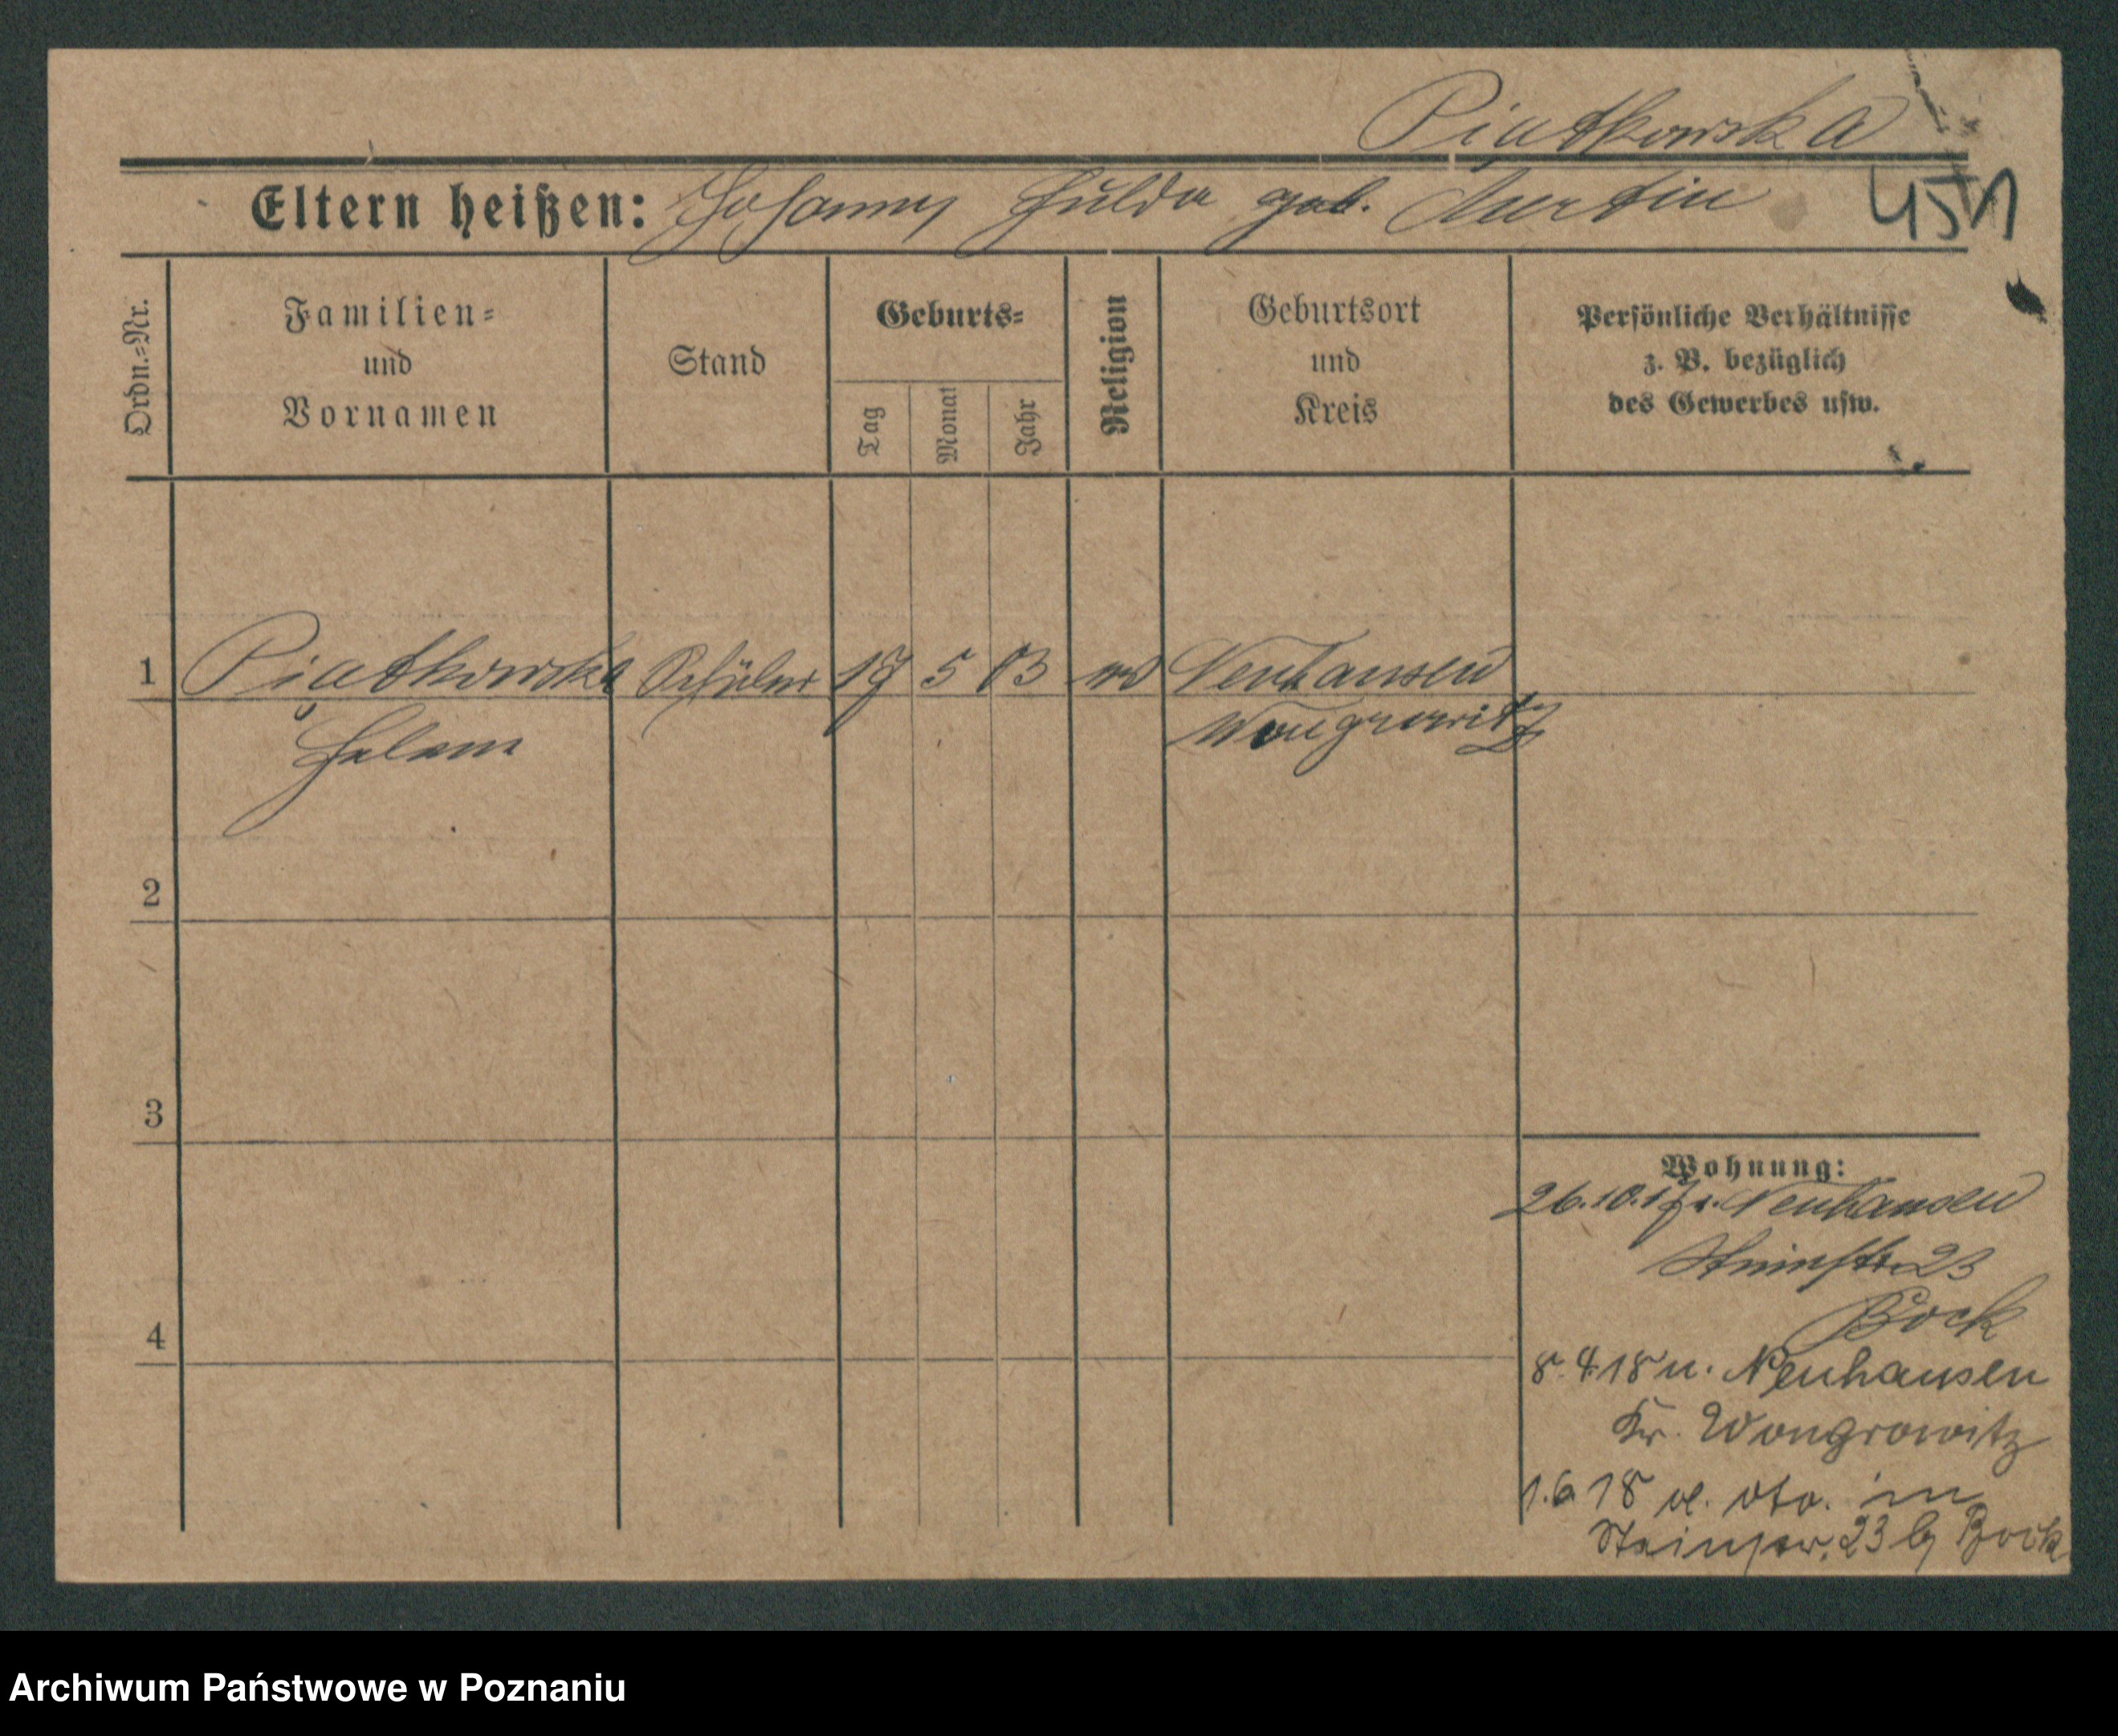 Piatkowska
Eltern heißen: Johann Hulda geb. Martin
451
Ordn.=Nr.
Familien=
und
Vornamen
Stand
Geburts=
Tag
Monat
Jahr
Religion
Geburtsort
und
Kreis
Persönliche Verhältnisse
z. B. bezüglich
des Gewerbes usw.
1 Piatkowska Schüler 17 5 03 Neuhausen
Helene Wongrowitz
2
3
4
Wohnung:
26.10.17 v. Neuhausen
Steinstr. 23
Bock
8.4.18 n. Neuhausen
Kr. Wongrowitz
1.6 18 v. dto. in
23 b/ Bock
Archiwum Państwowe w Poznaniu